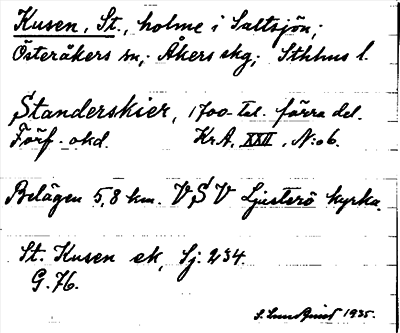 Kusen, St., holme i Saltsjön;
Österåkers sn,; Åkers skg; Sthlms l.
Standerskier, 1700-tal. förra del.
Förf. okd. Kr.A, XXII, N:o 6.
Belägen 5,8 km. VSV Ljusterö kyrka.
St. Kusen ek, Sj. 234.
G. 76.
S. Lundquist 1935.